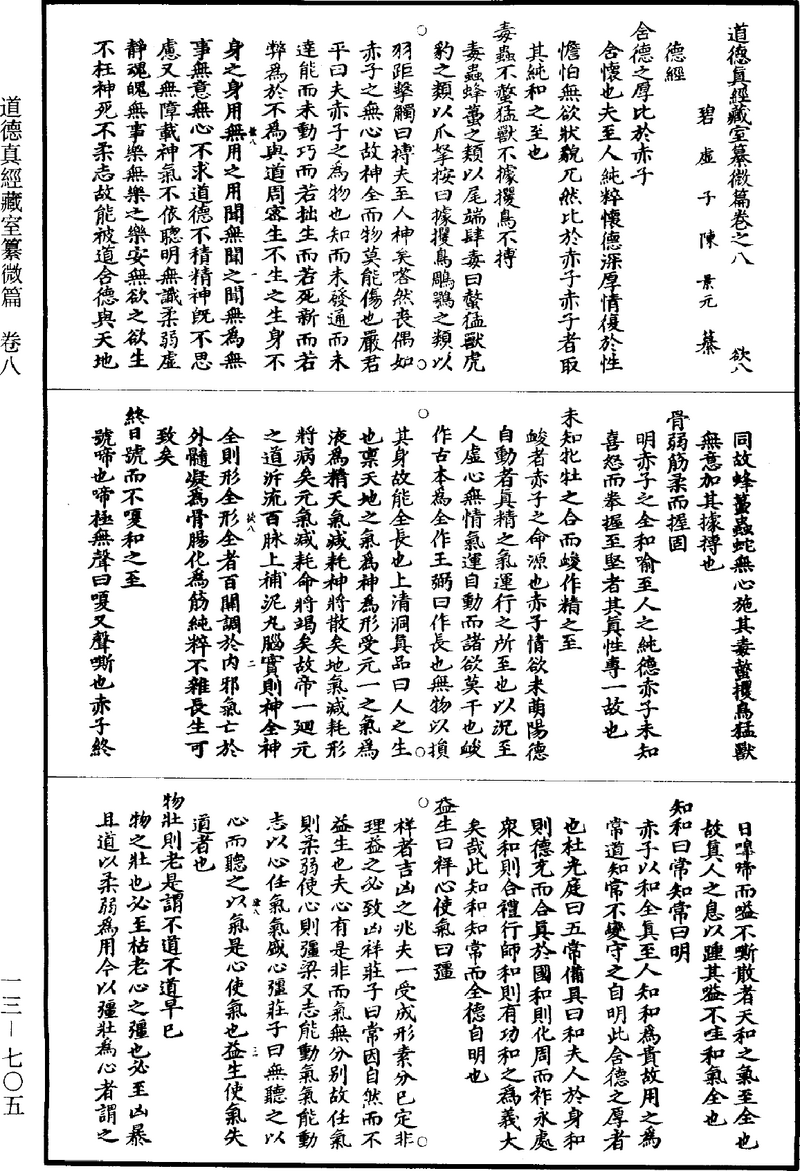 道德真經藏室纂微篇卷之八
碧虛子陳景元纂 欲八
德經
含德之厚比於赤子
含懷也夫至人純粹懷德深厚情復於性
憺怕無欲狀貌兀然比於赤子赤子者取
其純和之至也
毒蟲不螫猛獸不據攫鳥不搏
毒蟲蜂蠆之類以尾端肆毒曰螫猛獸虎
豹之類以爪拏按曰據攫鳥鵰鶚之類以
羽距擊觸曰搏夫至人神矣嗒然喪偶如
赤子之無心故神全而物莫能傷也嚴君
平曰夫赤子之為物也知而未發通而未
達能而未動巧而若拙生而若死新而若
弊為於不為與道周密生不生之生身不
身之身用無用之用聞無聞之聞無為無
事無意無心不求道德不積精神既不思
慮又無障載神氣不依聰明無識柔弱虛
靜魂魄無事樂無樂之樂安無欲之欲生
不枉神死不柔志故能被道含德與天地
同故蜂蠆蟲蛇無心施其毒螫攫鳥猛獸
無意加其據搏也
骨弱筋柔而握固
明赤子之全和喻至人之純德赤子未知
喜怒而拳握至堅者其真性專一故也
未知牝牡之合而峻作精之至
峻者赤子之命源也赤子情欲未萌陽德
自動者真精之氣運行之所至也以況至
人虛心無情氣運自動而諸欲莫干也峻
作古本為全作王弼曰作長也無物以損
其身故能全長也上清洞真品曰人之生
也稟天地之氣為神為形受元一之氣為
液為精天氣減耗神將散矣地氣減耗形
將病矣元氣減耗命將竭矣故帝一廻元
之道泝流百脉上補泥丸腦實則神全神
全則形全形全者百關調於內邪氣亡於
外髓凝為骨腸化為筋純粹不雜長生可
致矣
終日號而不嗄和之至
號啼也啼極無聲曰嗄又聲嘶也赤子終
日嗥啼而嗌不嘶散者天和之氣至全也
故真人之息以踵其嗌不哇和氣全也
知和曰常知常曰明
赤子以和全真至人知和為貴故用之為
常道知常不變守之自明此含德之厚者
也杜光庭曰五常備具曰和夫人於身和
則德充而合真於國和則化周而祚永處
衆和則合禮行師和則有功和之為義大
矣哉此知和知常而全德自明也
益生曰祥心使氣曰彊
祥者吉凶之兆夫一受成形素分已定非
理益之必致凶祥莊子曰常因自然而不
益生也夫心有是非而氣無分別故任氣
則柔弱使心則彊梁又志能動氣氣能動
志以心任氣氣盛心彊莊子曰無聽之以
心而聽之以氣是心使氣也益生使氣失
道者也
物壯則老是謂不道不道早已
物之壯也必至枯老心之彊也必至凶暴
且道以柔弱為用今以彊壯為心者謂之
道德真經藏室纂微篇 卷八
一三—七〇五